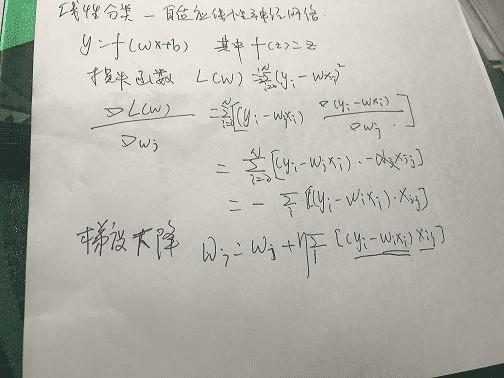 线性分类 — 自适应线性神经网络.
y=f(wx+b) 其中 f(z)=z
损失函数 L(w)=Σ_{i=0}^{N}(y_i-wx_i)²
▽L(w)/▽w_j = Σ_{i=0}^{N}[(y_i-w_jx_i) ▽(y_i-wx_i)/▽w_j]
= Σ_{i=0}^{N}[(y_i-w_jx_i)·-x_{ij}]
= - Σ_i [(y_i-w_ix_i)·x_{ij}]
梯度下降 w_j = w_j + η Σ_i [(y_i-w_ix_i) x_{ij}]